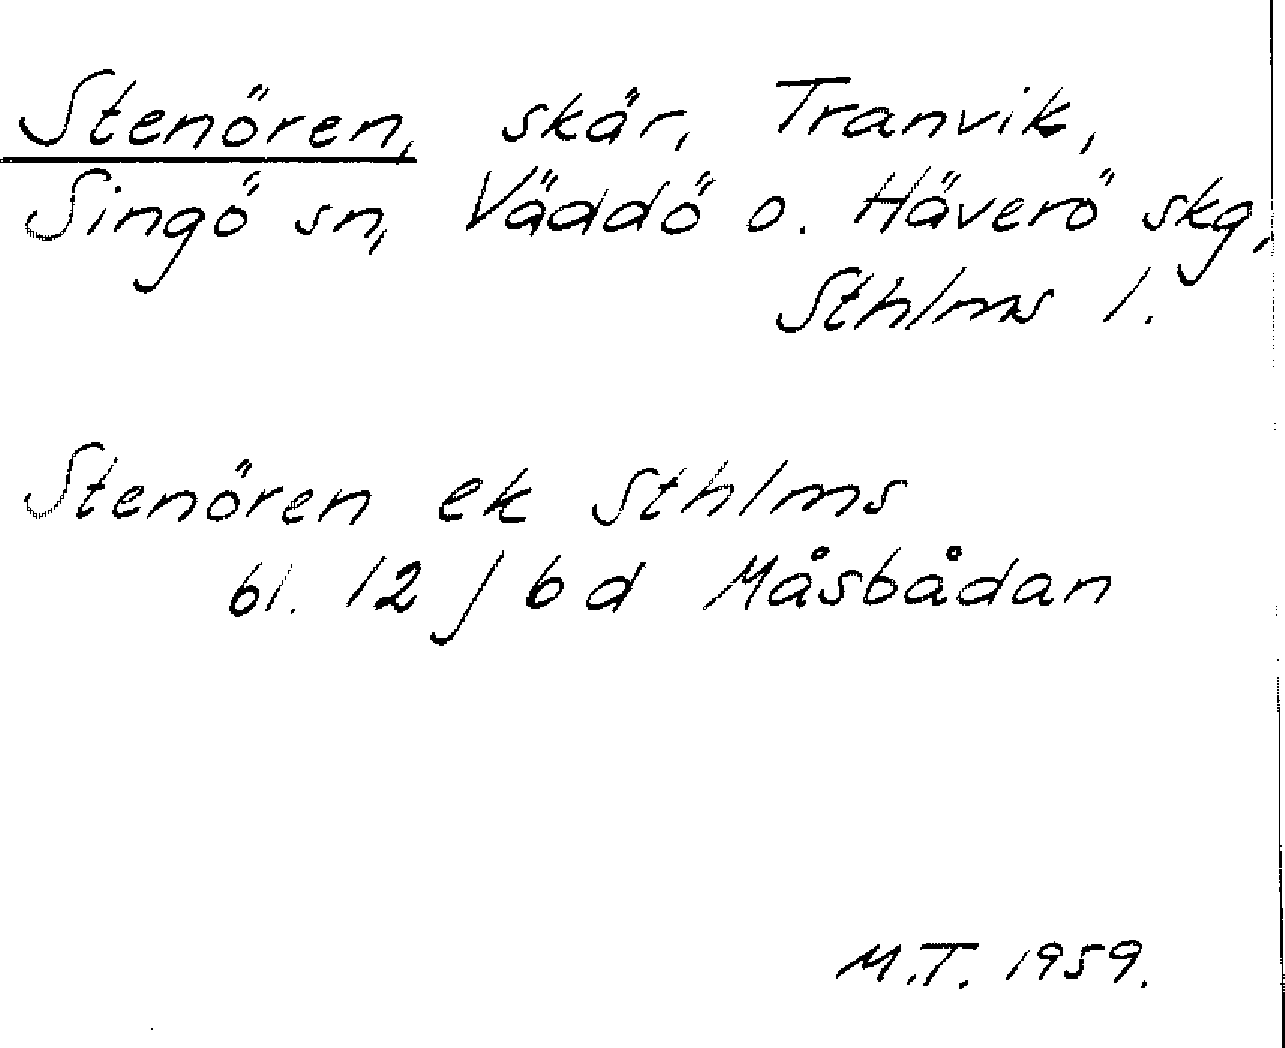 Stenören, skär, Tranvik,
Singö sn, Väddö o. Häverö skg,
Sthlms l.
Stenören ek Sthlms
bl. 12 j bd Måsbådan
M.T. 1959.